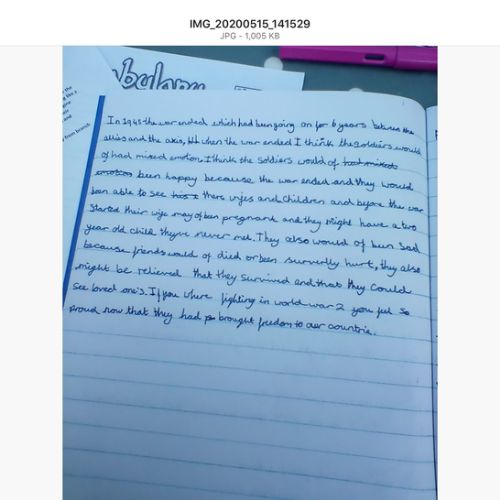 IMG_20200515_141529
JPG - 1,005 KB
bulary
from branch
In 1945 the war ended which had been going on for 6 years between the
allies and the axis, when the war ended I think the soldiers would
of had mixed emotion. I think the soldiers would of had mixed
emotion been happy because the war ended and they would
been able to see his there wifes and children and before the war
started their wife may of ben pregnant and they might have a two
year old child theyve never met. They also would of been sad
because friends would of died or ben hurt, they also
might be relieved that they survived and that they could
see loved one's. If you where fighting in world war 2 you feel so
proud now that they had brought freedom to our countrie.